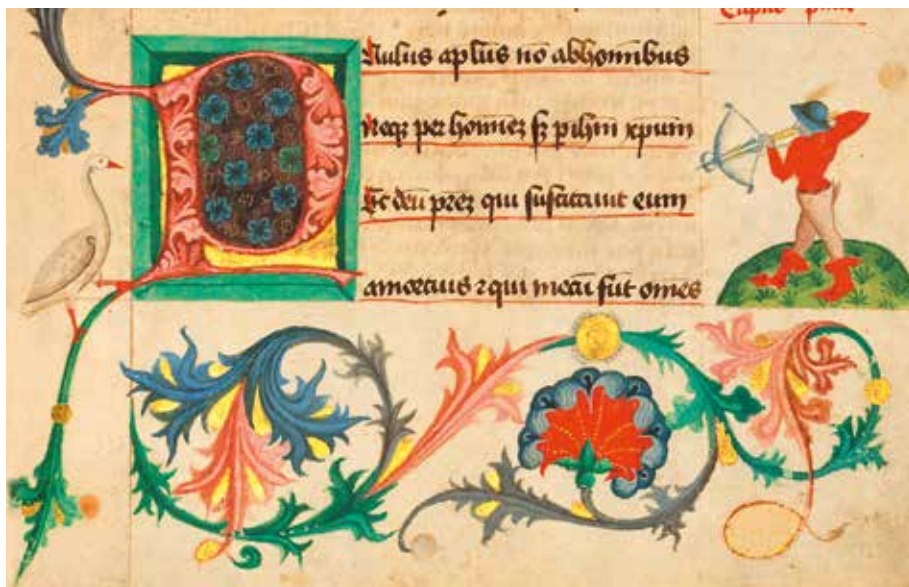 Paulus aplus no abhominibus
Neqz per hominez sz p ihm xpum
Et deu prez qui suscitauit eum
amortuis z qui mecu sut omes